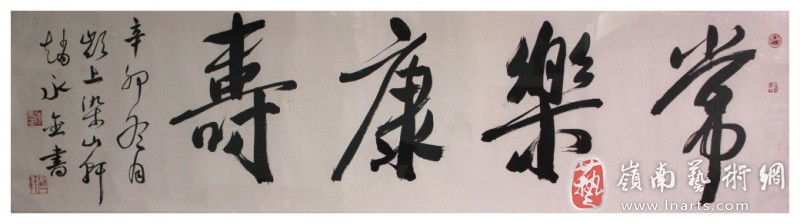 常樂康壽
辛卯冬月
潁上染山軒
趙永金書
嶺南藝術網
www.lnarts.com